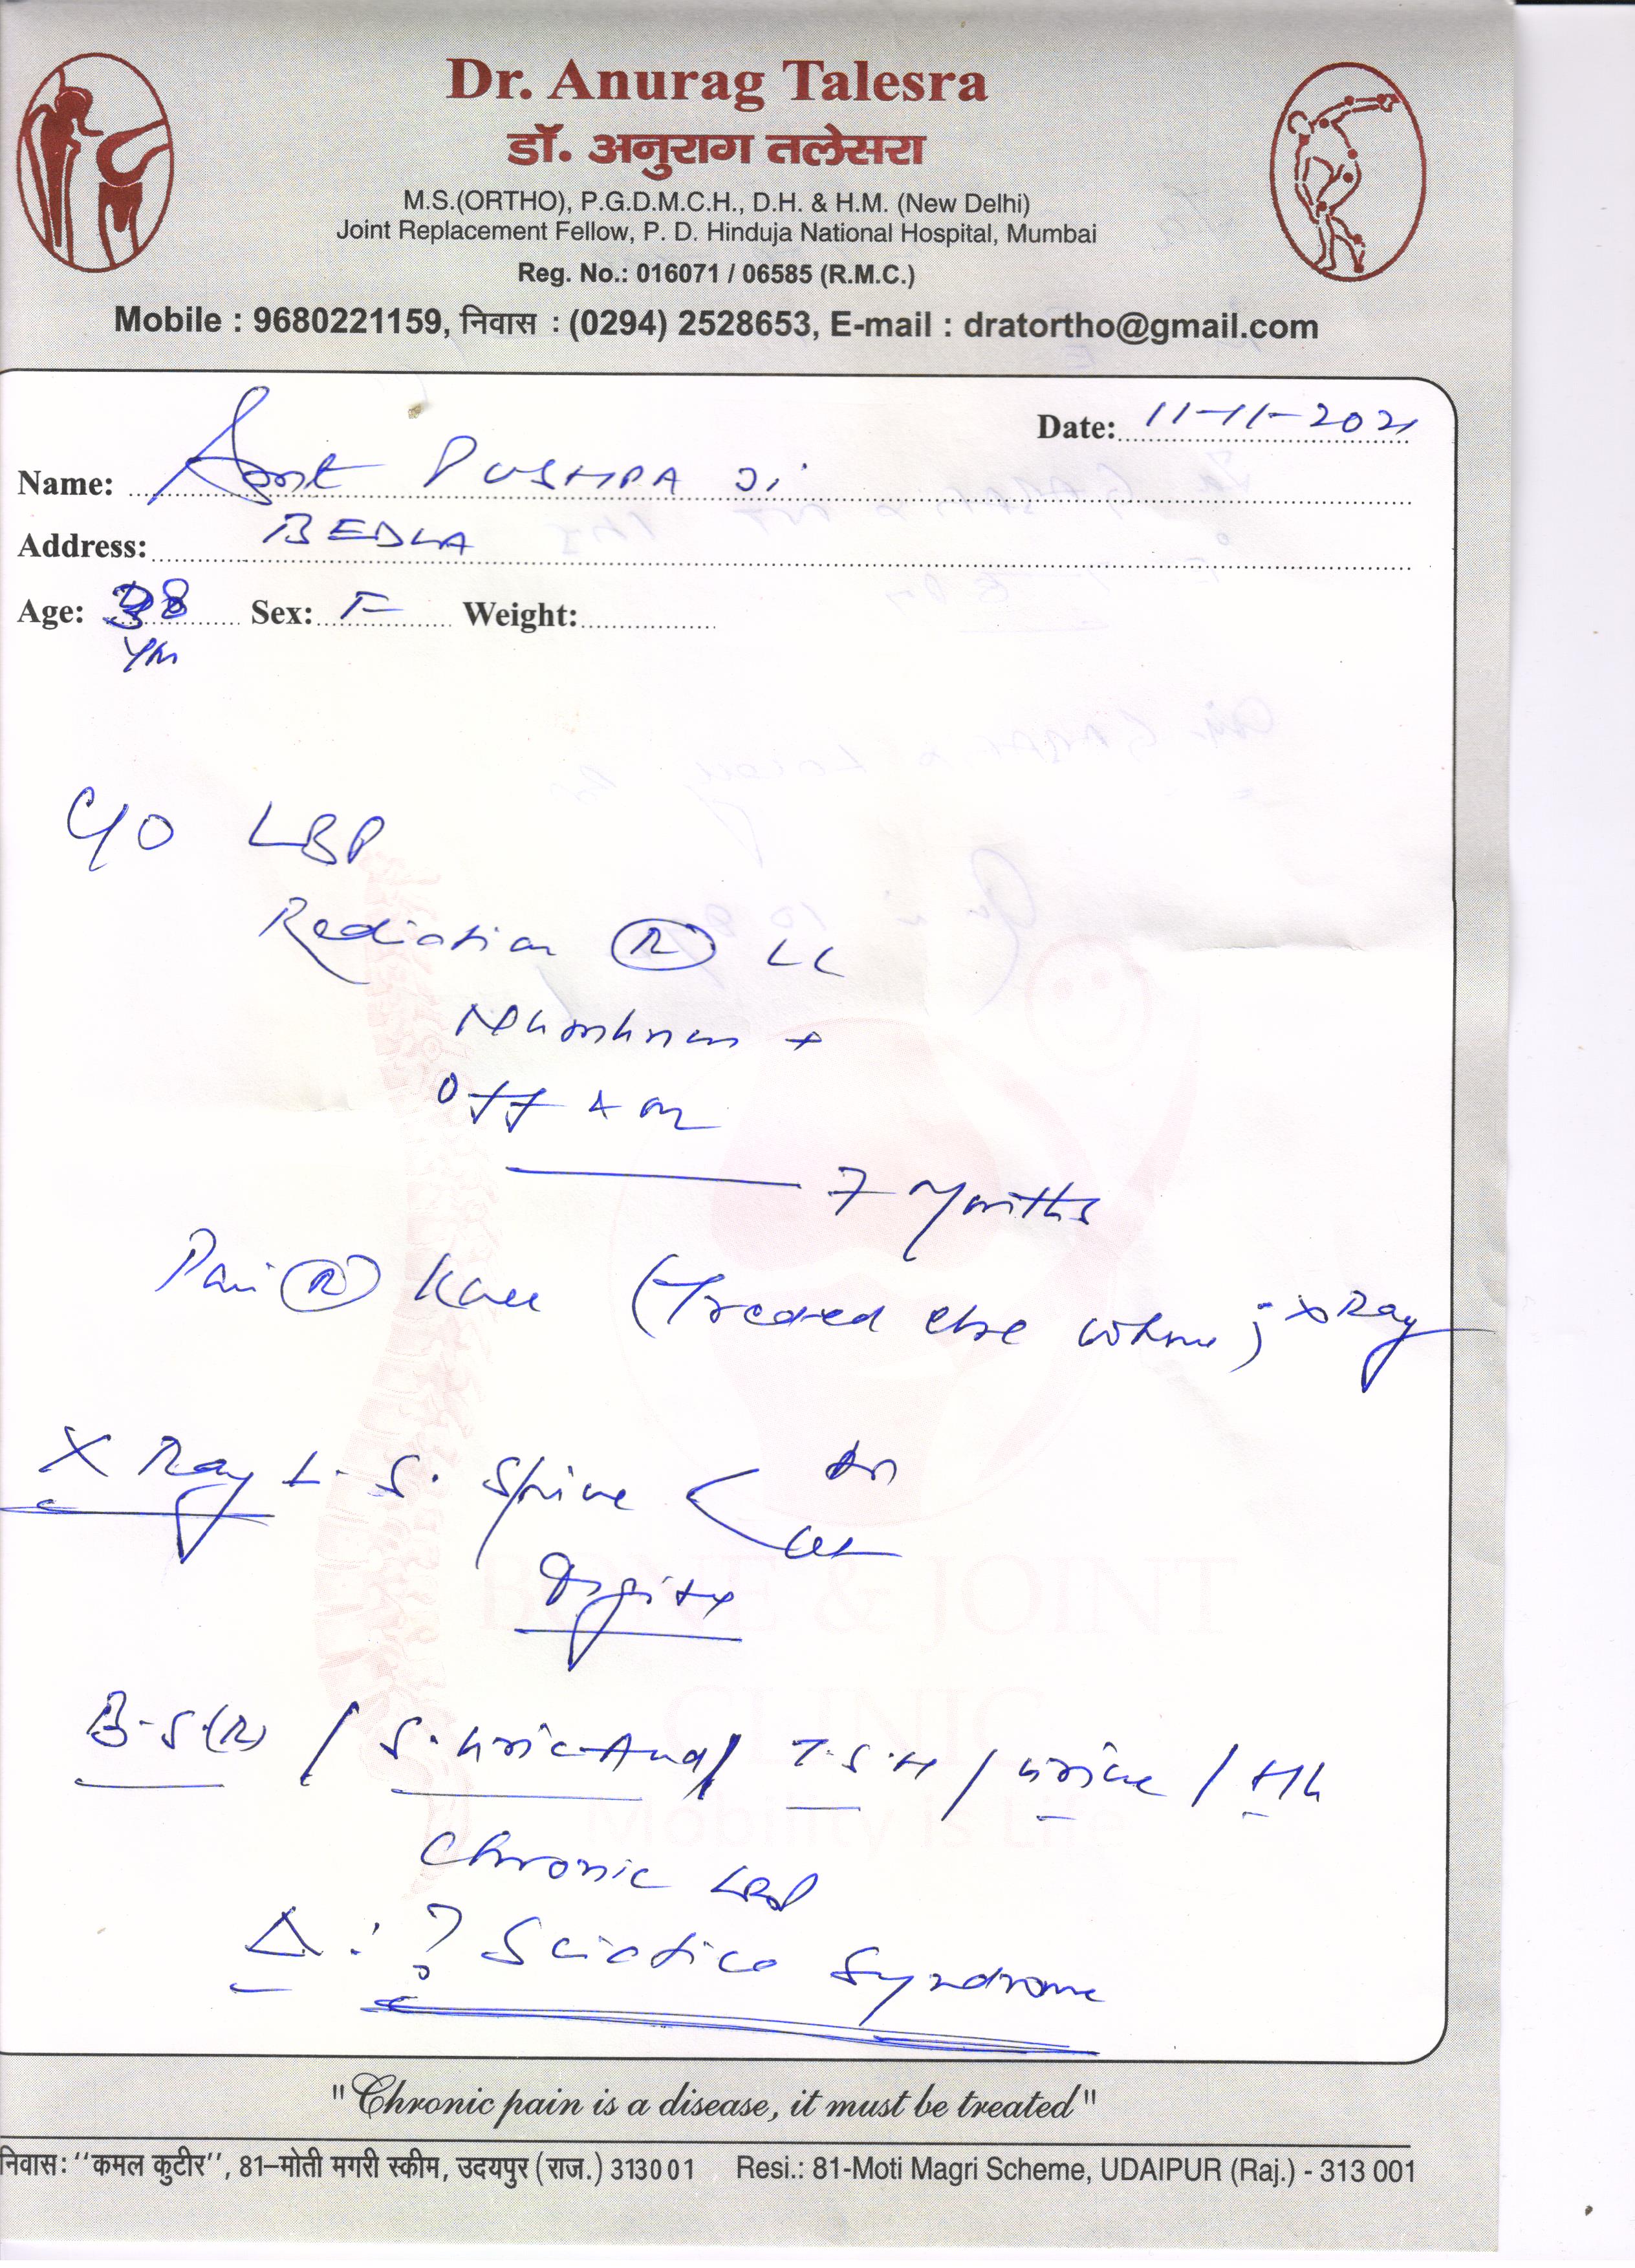 Dr. Anurag Talesra
डॉ. अनुराग तलेसरा
M.S.(ORTHO), P.G.D.M.C.H., D.H. & H.M. (New Delhi)
Joint Replacement Fellow, P. D. Hinduja National Hospital, Mumbai
Reg. No.: 016071 / 06585 (R.M.C.)
Mobile : 9680221159, निवास : (0294) 2528653, E-mail : dratortho@gmail.com
Date: 11-11-2021
Name: Smt PUSHPA Ji
Address: BEDLA
Age: 38 Sex: F Weight:
Yrs
C/O LBP
Radiation (R) LL
Numbness +
Off & on
7 Months
Pain (R) Knee (Treated else where ; X Ray
X Ray L. S. Spine < AP
Lat
Digital
B.S(R) / S. Uric Acid / T.S.H / Urine / Hb
Chronic LBP
Δ : ? Sciatica Syndrome
BONE & JOINT
CLINIC
Mobility is Life
"Chronic pain is a disease, it must be treated"
निवास: ''कमल कुटीर'', 81–मोती मगरी स्कीम, उदयपुर (राज.) 313001 Resi.: 81-Moti Magri Scheme, UDAIPUR (Raj.) - 313 001